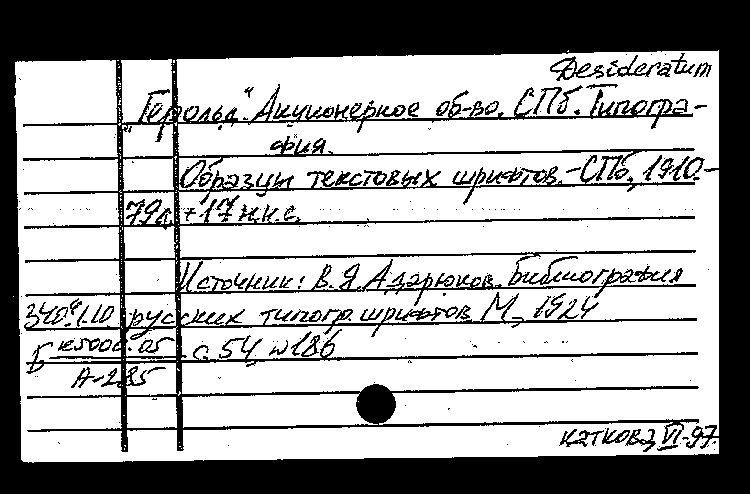 Desideratum
„Герольд“. Акционерное об-во. СПб. Типогра-
фия.
Образцы текстовых шрифтов.-СПб, 1910-
79л. + 17 н.н.с.
Источник: В.Я. Адарюков. Библиография
русских типогр. шрифтов М., 1924
Б
с. 54 №186
А-285
каткова, VI-97.